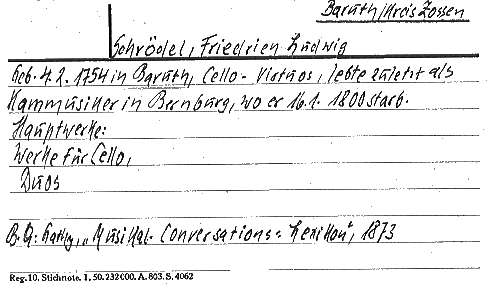 Baruth/Kreis Zossen
Schrödel, Friedrich Ludwig
Geb. 4.2. 1754 in Baruth, Cello-Virtuos, lebte zuletzt als
Kammusiker in Bernburg, wo er 16.1. 1800 starb.
Hauptwerke:
Werke für Cello,
Duos
B.Q: "Musikal. Conversations-Lexikon", 1873
Reg. 10. Stichnote. 1. 50. 232000. A. 803. S. 4062